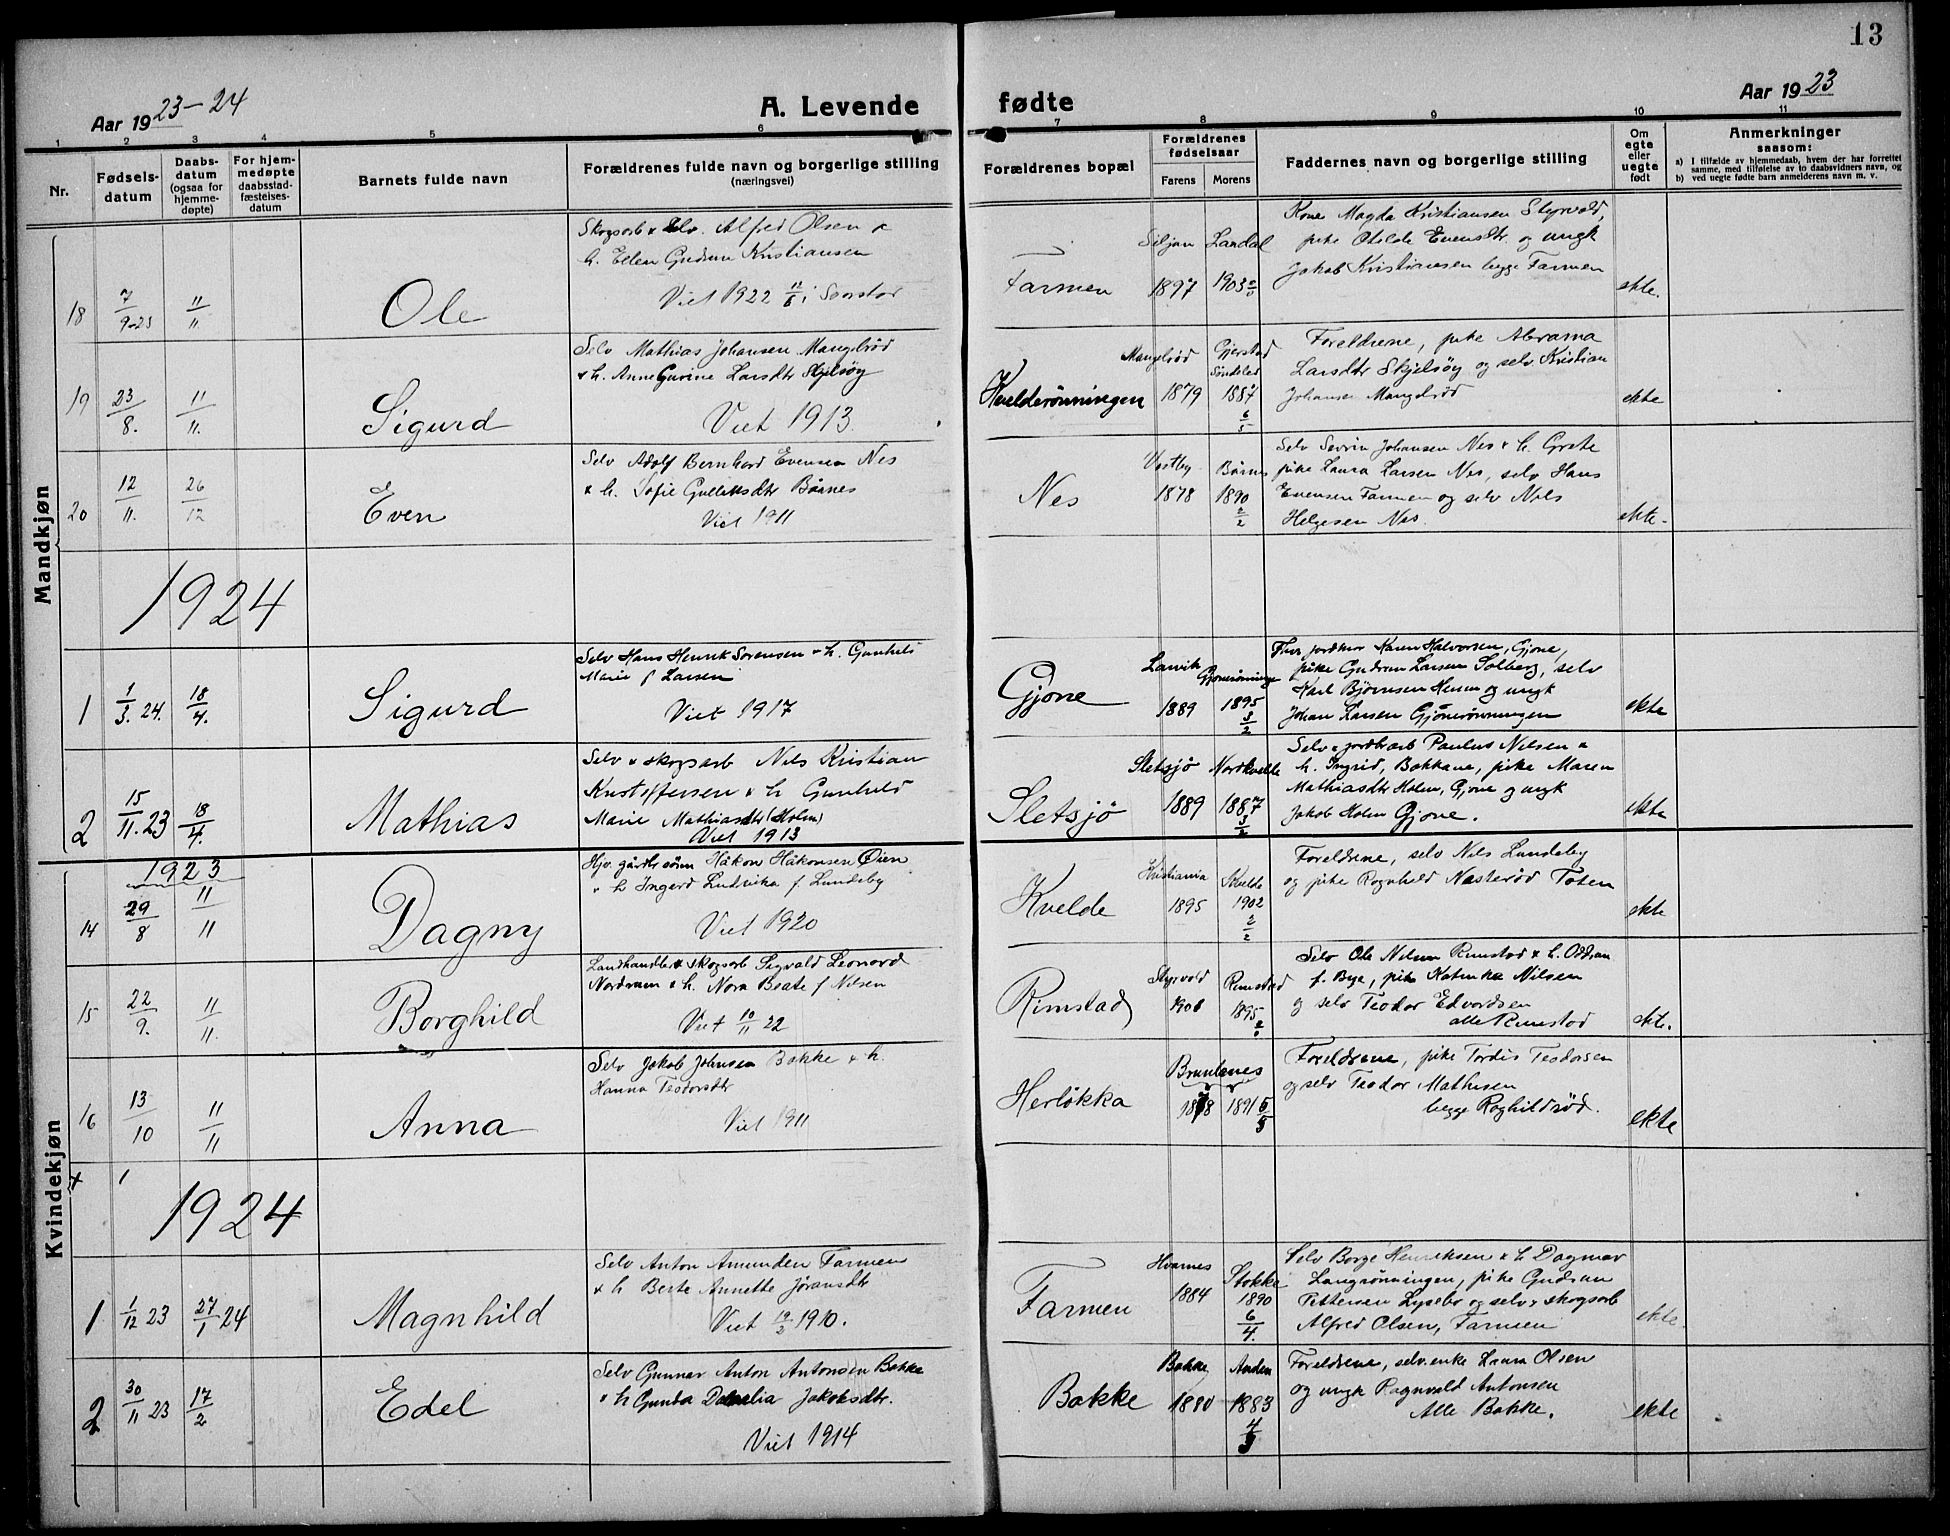 13
Aar 1923-24
A. Levende fødte
Aar 1923
1 2 3 4 5 6 7 8 9 10 11
Nr.
Fødsels-
datum
Daabs-
datum
(ogsaa for
hjemme-
døpte)
For hjem-
medøpte
daabsstad-
fæstelses-
datum
Barnets fulde navn
Forældrenes fulde navn og borgerlige stilling
(næringsvei)
Forældrenes bopæl
Forældrenes
fødselsaar
Farens Morens
Faddernes navn og borgerlige stilling
Om
egte
eller
uegte
født
Anmerkninger
saasom:
a) I tilfælde av hjemmedaab, hvem der har forrettet
samme, med tilføielse av to daabsvidners navn, og
b) ved uegte fødte barn anmelderens navn m. v.
Mandkjøn
18 7/9-23 11/11 Ole
Skogsarb & selv. Alfred Olsen &
h. Ellen Gudrun Kristiansen
Viet 1922 i
Farmen
Siljan 1897
Landal 1903
Kone Magda Kristiansen Styrvold,
pike Otilde Evensdtr og ungk
Jakob Kristiansen begge Farmen
ekte.
19 23/8. 11/11. Sigurd
Selv Mathias Johansen Mangelrød
& h. Anne Gurine Larsdtr Skjelsøy
Viet 1913.
Kvelderönningen
Mangelrød 1879
Gjerstad
Söndeled
1884
6/5
Foreldrene, pike Abrama
Larsdtr Skjelsøy og selv Kristian
Johansen Mangelrød
ekte
20 12/11. 26/12 Even
Selv Adolf Bernhard Evensen Nes
& h. Sofie Gulliksdtr Bårnes
Viet 1911
Nes
Vestby 1878
Bårnes 1890
2/2
Selv Sevrin Johansen Nes & h. Grete
pike Laura Larsen Nes, selv Hans
Evensen Farmen og selv Nils
Helgesen Nes.
ekte.
1924
1 1/3. 24. 18/4. Sigurd
Selv Hans Henrik Sorensen & h. Gunhild
Marie f Larsen
Viet 1917
Gjone
Larvik 1889
Gjonerönninge
1895
3/2
jordbr Karen Halvorsen, Gjone,
pike Gudrun Larsen Solberg, selv
Karl Bjørnsen Heum og ungk
Johan Larsen Gjönerönningen
ekte
2 15/11. 23 18/4. Mathias
Selv & skogsarb Nils Kristian
Kristoffersen & h Gunhild
Marie Mathiasdtr (Holm)
Viet 1913
Sletsjø
Sletsjø 1889
Nordkvelde 1887
3/2
Selv & jordbarb Paulus Nilsen &
h. Ingrid, Bakkane, pike Maren
Mathiasdtr Holm, Gjone og ungk
Jakob Holm Gjone.
ekte
Kvindekjøn
1923
14 29/8 11/11 Dagny
Hjv. gårdbr sönn Håkon Håkonsen Øien
& h Ingerd Ludvika f. Lundeby
Viet 1920
Kvelde
Kristiania 1895
Kvelde 1902
2/2
Foreldrene, selv Nils Lundeby
og pike Ragnhild Nasterød Toten
ekte
15 22/9. 11/11. Borghild
Landhandler & skogsarb Sigvald Leonard
Nordrum & h. Nora Beate f Nilsen
Viet 10/11 22
Rimstad
Styrvold 1901
Rimstad 1895
Selv Ole Nilsen Rimstad & h. Oddrun
f. Bye, pike Katinka Nilsen
og selv Teodor Edvardsen
alle Rimstad
ekte.
16 13/10 11/11 Anna
Selv Jakob Johnsen Bakke & h.
Hanna Teodorsdtr
Viet 1911
Herløkka
Brunlanes
1878 1891 5/5
Foreldrene, pike Tordis Teodorsen
og selv Teodor Mathisen
begge Roghildrød.
ekte
1924
1 1/12 23 27/1 24 Magnhild
Selv Anton Amunden Farmen
& h Berte Annette Jöransdtr
Viet 12/2 1910.
Farmen
Hvarnes 1884
Stokke 1890
6/4.
Selv Borge Henriksen & h Dagmar
Langrønningen, pike Gudrun
Pettersen Lysebo og selv & skogsarb
Alfred Olsen, Farmen
ekte.
2 30/11 23 17/2 Edel
Selv Gunnar Anton Antonsen Bakke
& h Gunda Jakobsdtr.
Viet 1914
Bakke
Bakke 1880
1883
4/3
Foreldrene, selv.enke Laura Olsen
og ungk Ragnvald Antonsen
Alle Bakke.
ekte